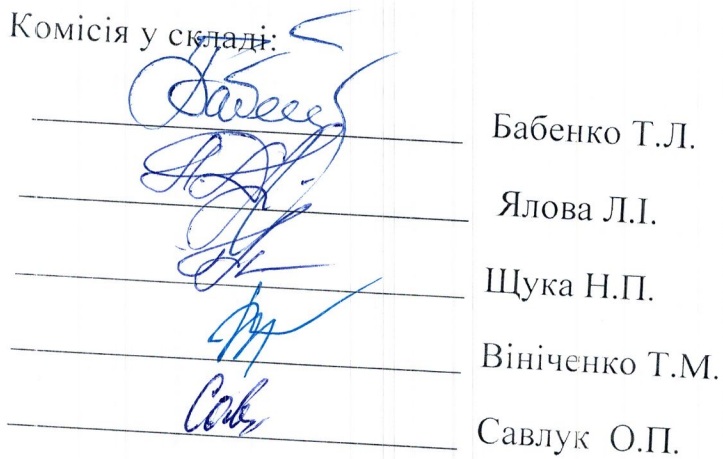 Комісія у складі:
Бабенко Т.Л.
Ялова Л.І.
Щука Н.П.
Вініченко Т.М.
Савлук О.П.